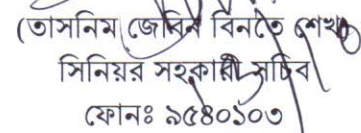 (তাসনিম জেবিন বিনতে শেখ)
সিনিয়র সহকারী সচিব
ফোনঃ ৯৫৪০১০৩